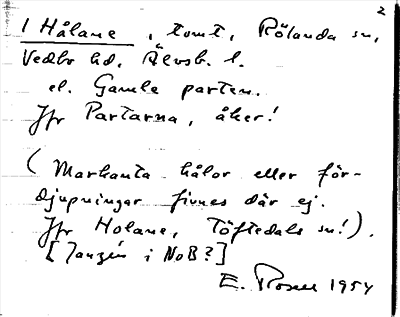 2
1 Hålane, tomt, Rölanda sn,
Vedbo hd, Älvsb. l.
el. Gamle parten.
Jfr Partarna, åker!
(Markanta hålor eller för-
djupningar finnes där ej.
Jfr Holane, Töftedals sn!).
[Janzén i NoB?]
E. Rosell 1954